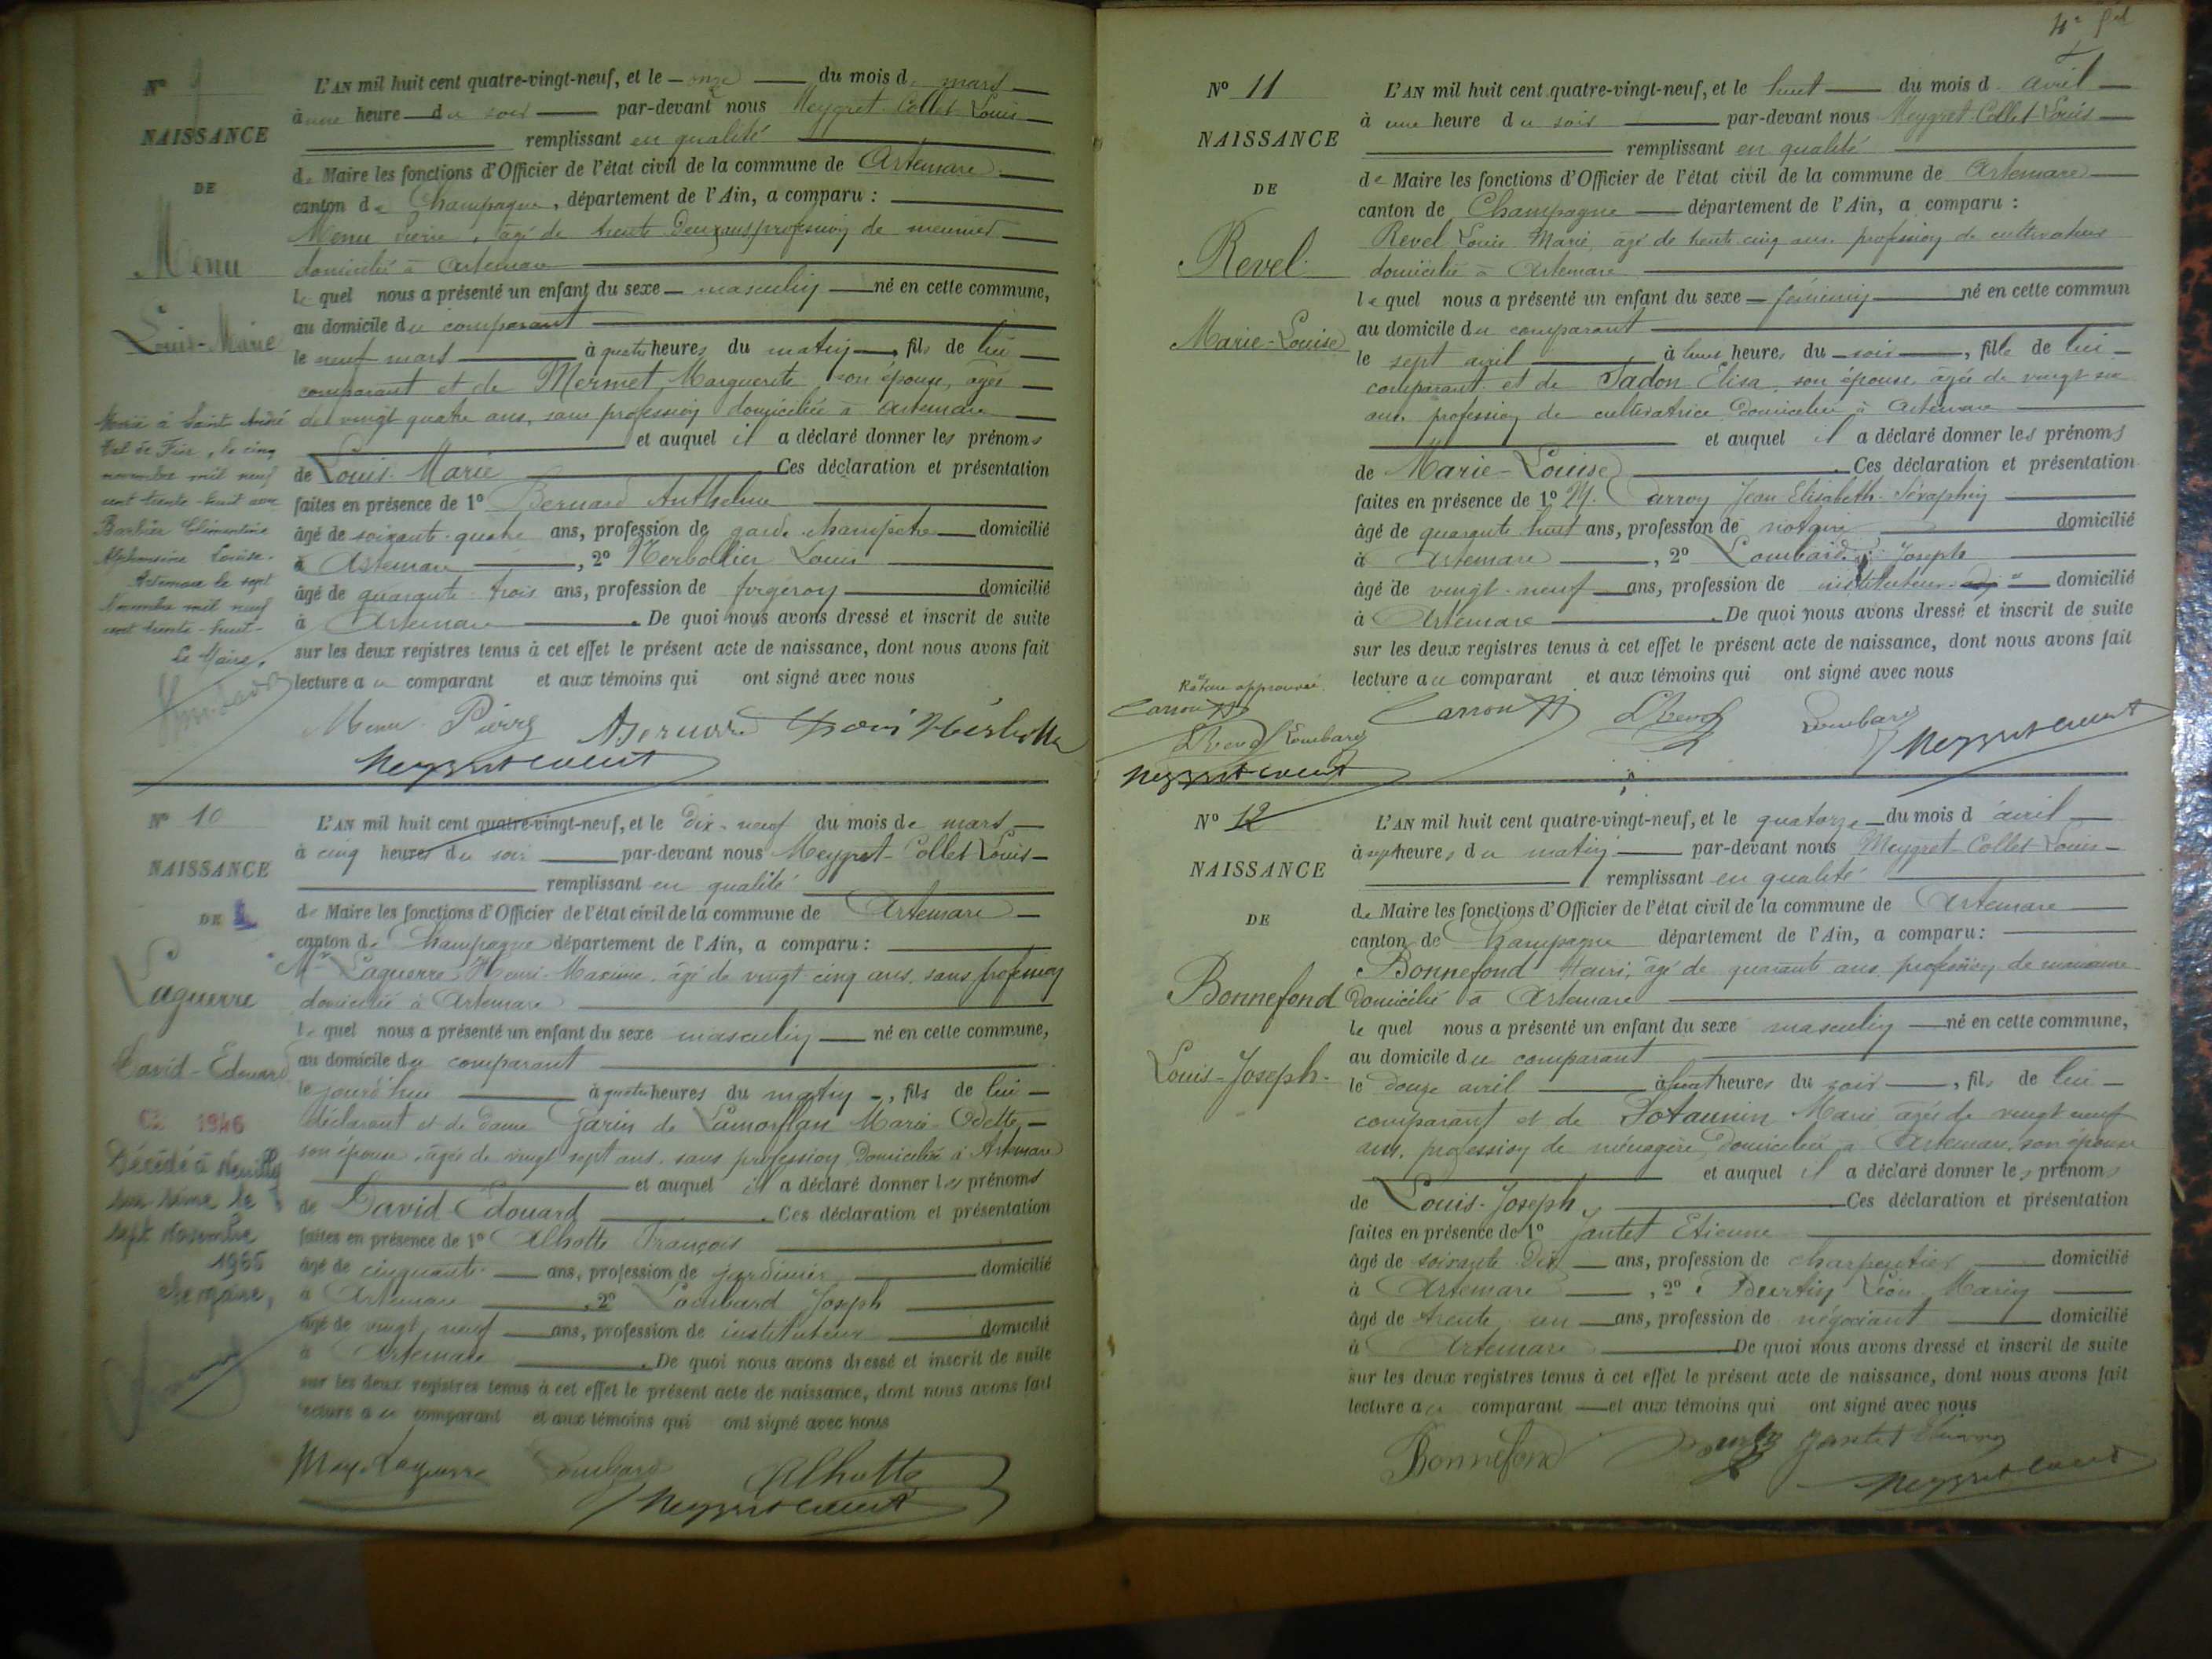 Nº 9
NAISSANCE
DE
Menu
Louis-Marie
L'AN mil huit cent quatre-vingt-neuf, et le onze du mois de mars
à une heure du soir par-devant nous Meygret-Collet Louis
remplissant en qualité
de Maire les fonctions d'Officier de l'état civil de la commune de Artemare
canton de Champagne, département de l'Ain, a comparu :
Menu Pierre, âgé de trente deux ans profession de meunier
domicilié à Artemare
le quel nous a présenté un enfant du sexe masculin né en cette commune,
au domicile du comparant
le neuf mars à quatre heures du matin, fils de lui
comparant et de Mermet Marguerite, son épouse, âgée
de vingt quatre ans, sans profession domiciliée à Artemare
et auquel il a déclaré donner les prénoms
de Louis-Marie Ces déclaration et présentation
faites en présence de 1º Bernard Anthelme
âgé de soixante-quatre ans, profession de garde champêtre domicilié
à Artemare, 2º Herbollier Louis
âgé de quarante trois ans, profession de forgeron domicilié
à Artemare. De quoi nous avons dressé et inscrit de suite
sur les deux registres tenus à cet effet le présent acte de naissance, dont nous avons fait
lecture au comparant et aux témoins qui ont signé avec nous
Menu Pierre
Marié à Saint André
Val de Fier, le cinq
novembre mil neuf
cent trente-huit avec
Barbier Clémentine
Alphonsine Louise.
Artemare le sept
Novembre mil neuf
cent trente-huit
Le Maire,
Nº 10
NAISSANCE
DE
Laguerre
David-Edouard
L'AN mil huit cent quatre-vingt-neuf, et le dix-neuf du mois de mars
à cinq heures du soir par-devant nous Meygret-Collet Louis
remplissant en qualité
de Maire les fonctions d'Officier de l'état civil de la commune de Artemare
canton de Champagne département de l'Ain, a comparu :
Mr Laguerre Henri-Maxime, âgé de vingt cinq ans, sans profession
domicilié à Artemare
le quel nous a présenté un enfant du sexe masculin né en cette commune,
au domicile du comparant
le jourd'hui à quatre heures du matin, fils de lui
déclarant et de dame Garin de Lamorflan Marie-Odette,
son épouse, âgée de vingt sept ans, sans profession domiciliée à Artemare
et auquel il a déclaré donner les prénoms
de David-Edouard. Ces déclaration et présentation
faites en présence de 1º Alhotte François
âgé de cinquante ans, profession de jardinier domicilié
à Artemare, 2º Lombard Joseph
âgé de vingt neuf ans, profession de instituteur domicilié
à Artemare. De quoi nous avons dressé et inscrit de suite
sur les deux registres tenus à cet effet le présent acte de naissance, dont nous avons fait
lecture au comparant et aux témoins qui ont signé avec nous
Lombard Alhotte
1946
Décédé à Neuilly
sur Seine le
sept Novembre
Le Maire,
Nº 11
NAISSANCE
DE
Revel
Marie-Louise
L'AN mil huit cent quatre-vingt-neuf, et le huit du mois d avril
à une heure du soir par-devant nous Meygret-Collet Louis
remplissant en qualité
de Maire les fonctions d'Officier de l'état civil de la commune de Artemare
canton de Champagne département de l'Ain, a comparu :
Revel Louis Marie, âgé de trente cinq ans, profession de cultivateur
domicilié à Artemare
le quel nous a présenté un enfant du sexe féminin né en cette commun
au domicile du comparant
le sept avril à heures du soir, fille de lui
comparant et de Sadon Elisa, son épouse, âgée de vingt six
ans, profession de cultivatrice domiciliée à Artemare
et auquel il a déclaré donner les prénoms
de Marie-Louise. Ces déclaration et présentation
faites en présence de 1º M. Carron Jean Elisabeth-Séraphin
âgé de quarante huit ans, profession de notaire domicilié
à Artemare, 2º Lombard Joseph
âgé de vingt-neuf ans, profession de instituteur domicilié
à Artemare. De quoi nous avons dressé et inscrit de suite
sur les deux registres tenus à cet effet le présent acte de naissance, dont nous avons fait
lecture au comparant et aux témoins qui ont signé avec nous
Rature approuvée
Carron L Revel Lombard
Nº 12
NAISSANCE
DE
Bonnefond
Louis-Joseph
L'AN mil huit cent quatre-vingt-neuf, et le quatorze du mois d avril
à sept heures du matin par-devant nous Meygret-Collet Louis
remplissant en qualité
de Maire les fonctions d'Officier de l'état civil de la commune de Artemare
canton de Champagne département de l'Ain, a comparu :
Bonnefond Henri, âgé de quarante ans, profession de
domicilié à Artemare
le quel nous a présenté un enfant du sexe masculin né en cette commune,
au domicile du comparant
le douze avril à huit heures du soir, fils de lui
comparant et de Marie âgée de vingt neuf
ans, profession de ménagère, domiciliée à Artemare, son épouse
et auquel il a déclaré donner les prénoms
de Louis-Joseph Ces déclaration et présentation
faites en présence de 1º Jantet Etienne
âgé de soixante Dix ans, profession de charpentier domicilié
à Artemare, 2º Léon Marin
âgé de trente un ans, profession de négociant domicilié
à Artemare De quoi nous avons dressé et inscrit de suite
sur les deux registres tenus à cet effet le présent acte de naissance, dont nous avons fait
lecture au comparant et aux témoins qui ont signé avec nous
Bonnefond